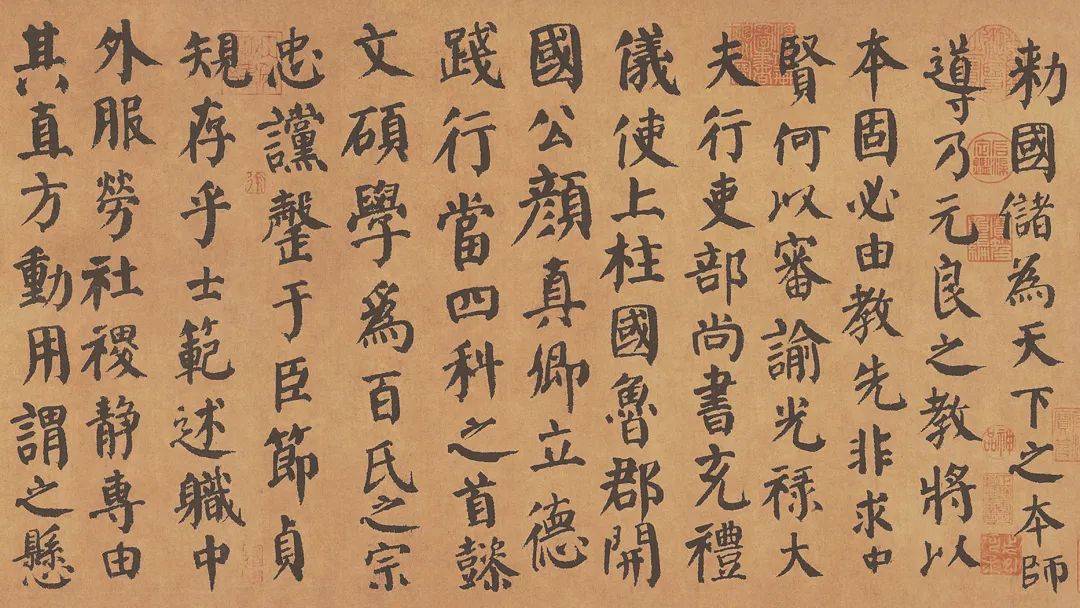 勑國儲為天下之本師
導乃元良之教將以
本固必由教先非求中
賢何以審諭光祿大
夫行吏部尚書充禮
儀使上柱國魯郡開
國公顏真卿立德
踐行當四科之首懿
文碩學爲百氏之宗
忠讜罄于臣節貞
規存乎士範述職中
外服勞社稷静專由
其直方動用謂之懸